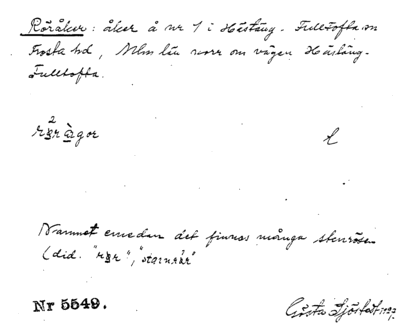 Röråker: åker å nr 1 i Hästäng. Fulltofta sn
Frosta hd, Mlm län norr om vägen Hästäng-
Fulltofta.
Namnet emedan det finnas många stenrösen
(did.
Nr 5549.
Gösta Sjöstedt